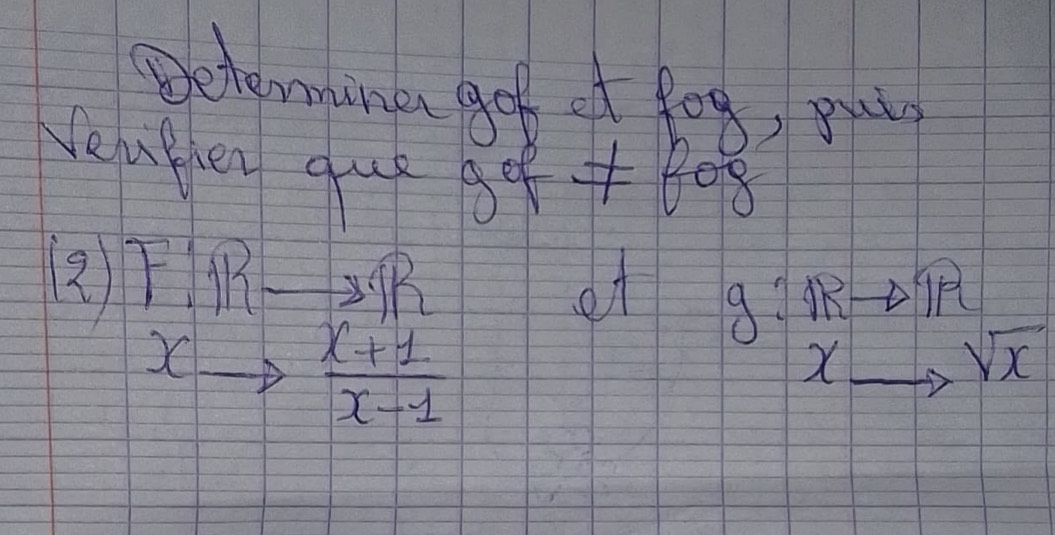 Determiner gof et fog, puis
Verifier que gof ≠ fog
(2) F: ℝ → ℝ et g: ℝ → ℝ
x → x+1 / x-1 x → √x